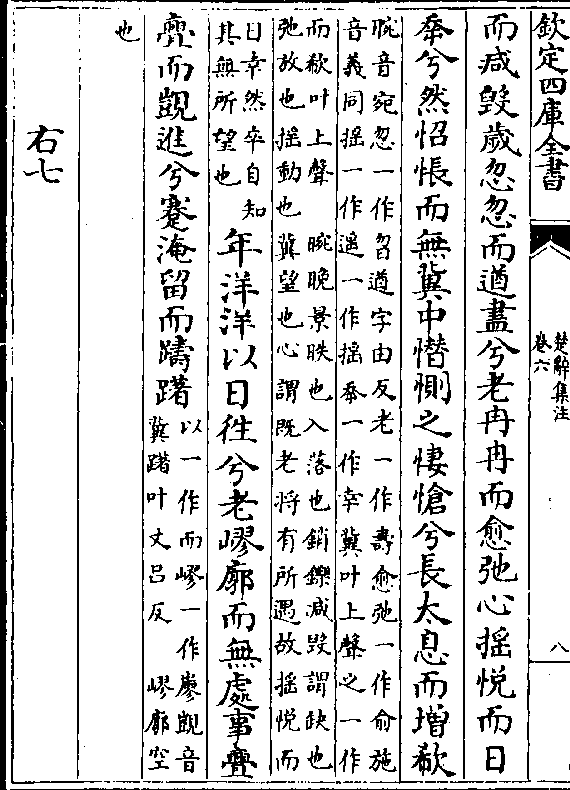 欽定四庫全書
楚辭集注
卷六
八
而減毀歲忽忽而遒盡兮老冉冉而愈弛心揺悦而日
㚔兮然怊悵而無冀中憯惻之悽愴兮長太息而增欷
晼音宛忽一作曶遒字由反老一作壽愈弛一作俞施
音義同揺一作遥一作揺㚔一作幸冀叶上聲之一作
而欷叶上聲 晼晚景昳也入落也銷鑠減毀謂缺也
弛放也揺動也冀望也心謂既老將有所遇故揺悦而
日幸然卒自知
其無所望也
年洋洋以日徃兮老嵺廓而無處事亹
亹而覬進兮蹇淹留而躊躇
以一作而嵺一作廖覬音
冀躇叶丈吕反 嵺廓空
也
右七